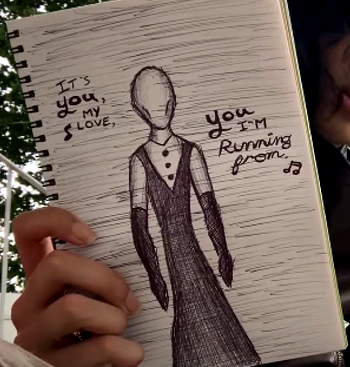 IT'S
you,
MY
LOVE,
you
I'M
Running
from.